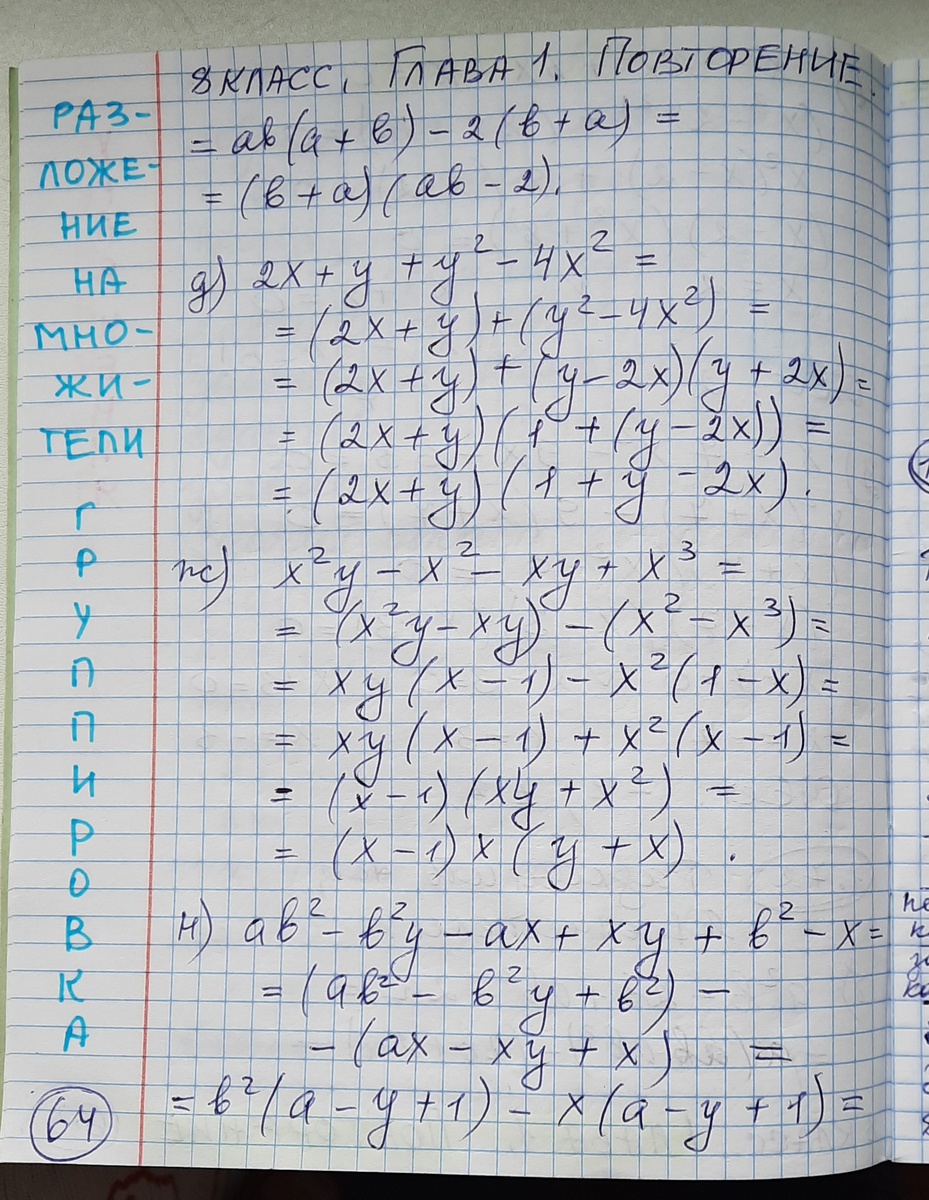 8 КЛАСС, ГЛАВА 1. ПОВТОРЕНИЕ.
РАЗ-
ЛОЖЕ-
НИЕ
НА
МНО-
ЖИ-
ТЕЛИ
Г
Р
У
П
П
И
Р
О
В
К
А
64
= ав(а + в) - 2(в + а) =
= (в + а)(ав - 2).
д) 2x + y + y² - 4x² =
= (2x + y) + (y² - 4x²) =
= (2x + y) + (y - 2x)(y + 2x) =
= (2x + y)(1 + (y - 2x)) =
= (2x + y)(1 + y - 2x).
ж) x²y - x² - xy + x³ =
= (x²y - xy) - (x² - x³) =
= xy(x - 1) - x²(1 - x) =
= xy(x - 1) + x²(x - 1) =
= (x - 1)(xy + x²) =
= (x - 1)x(y + x).
н) ав² - в²y - ax + xy + в² - x =
= (ав² - в²y + в²) -
- (ax - xy + x) =
= в²(a - y + 1) - x(a - y + 1) =